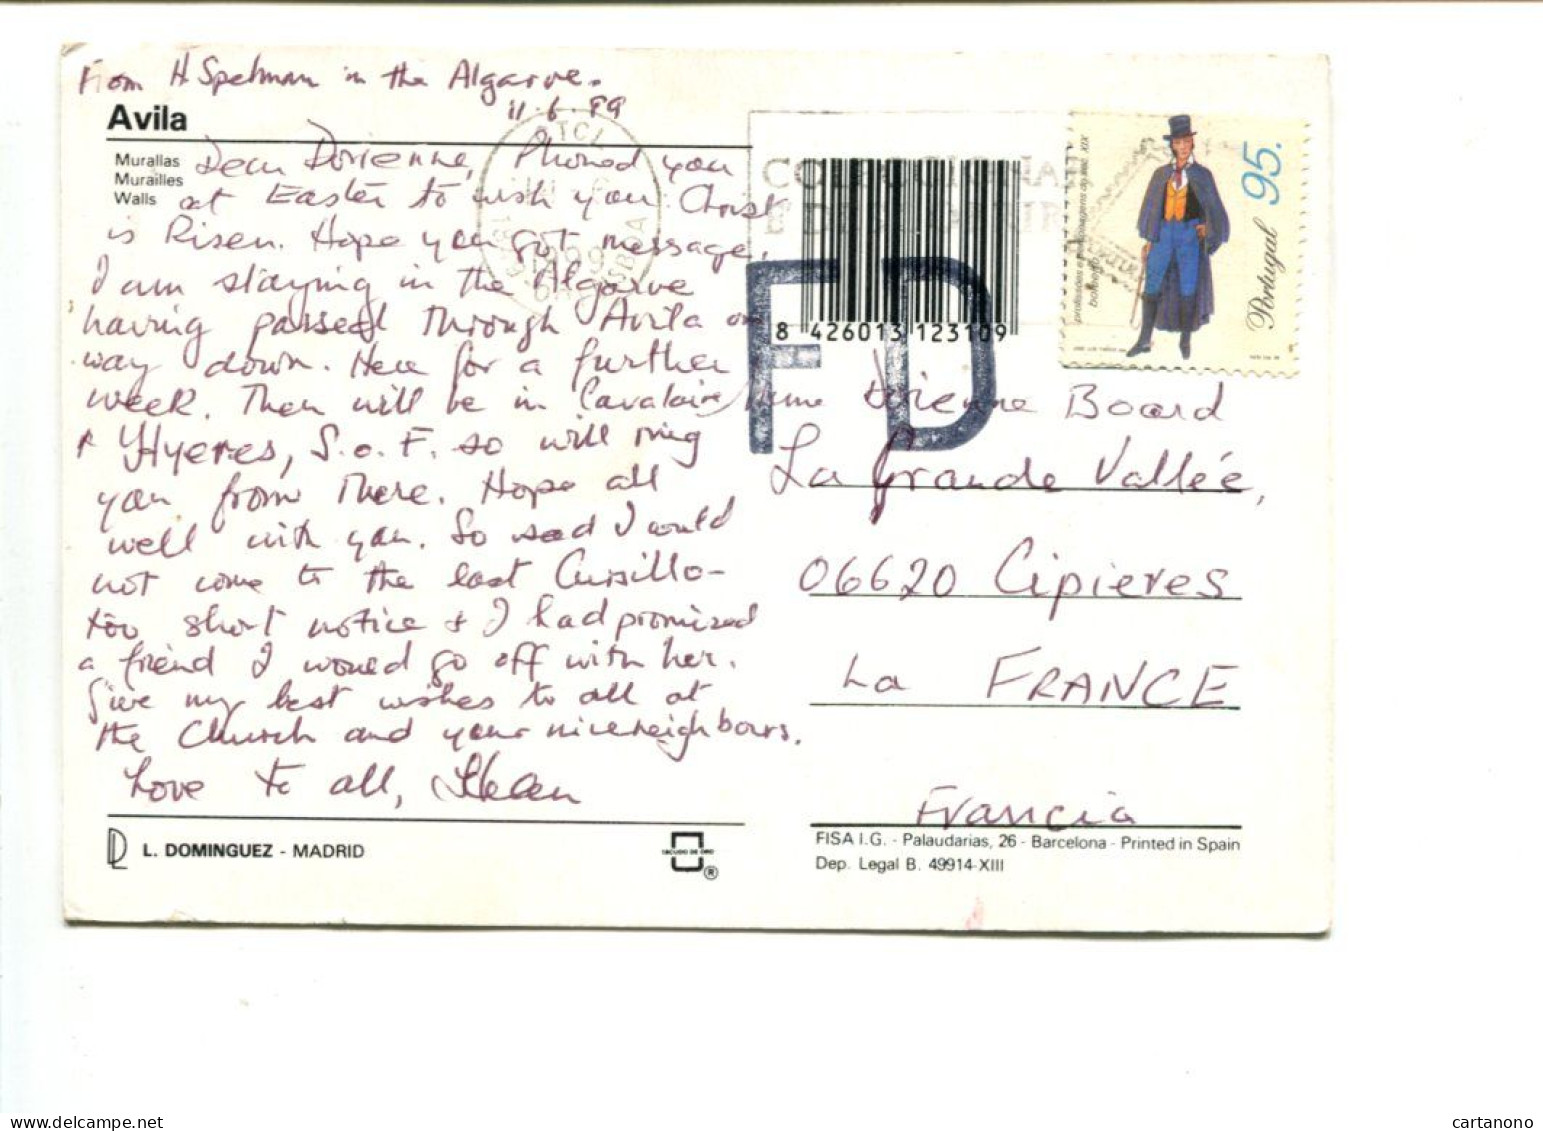 From H Spelman in the Algarve.
11.6.99
Avila
Murallas
Murailles
Walls
Dear Dorienne, Phoned you
at Easter to wish you Christ
is Risen. Hope you got message,
I am staying in the Algarve
having passed through Avila on
way down. Here for a further
week. Then will be in Cavalaire
& Hyeres, S.o.F. so will ring
you from there. Hope all
well with you. So sad I could
not come to the last Cursillo-
too short notice & I had promised
a friend I would go off with her.
Give my best wishes to all at
the Church and your nice neighbours.
Love to all, Helen
L. DOMINGUEZ - MADRID
ESCUDO DE ORO
®
CTCL
1999
LISBOA
8 426013 123109
FD
95.
Portugal
Board
La Grande Vallée,
06620 Cipieres
La FRANCE
Francia
FISA I.G. - Palaudarias, 26 - Barcelona - Printed in Spain
Dep. Legal B. 49914-XIII
cartanono